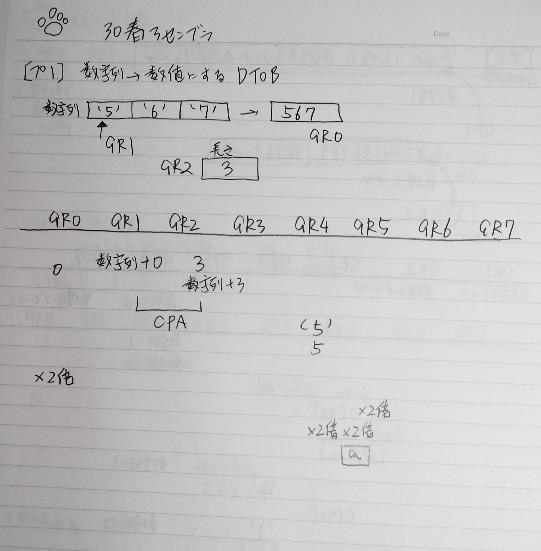 30春アセンブラ
Date
[プ1] 数字列→数値にする DTOB
数字列 '5' '6' '7' → 567
GR1 GR0
長さ
GR2 3
GR0 GR1 GR2 GR3 GR4 GR5 GR6 GR7
0 数字列+0 3
数字列+3
CPA '5'
5
×2倍
×2倍
×2倍 ×2倍
a